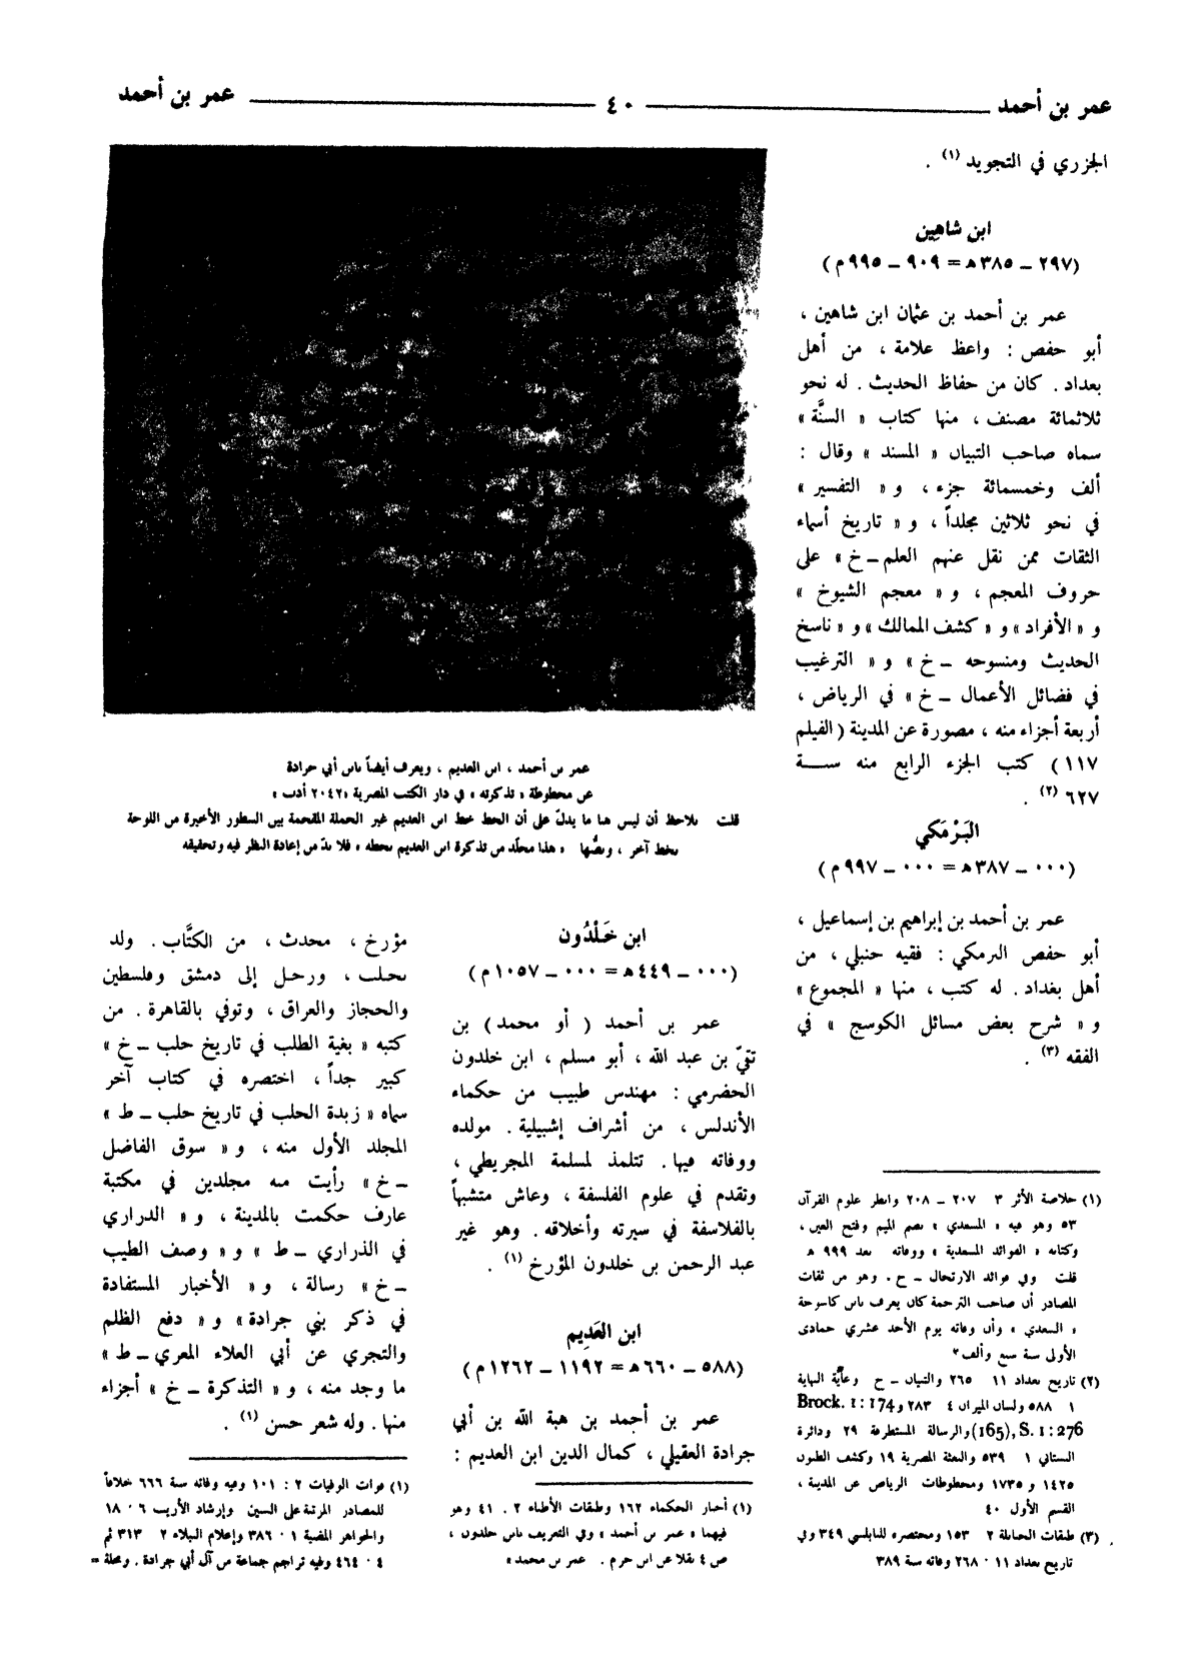 عمر بن أحمد ٤٠ عمر بن أحمد
الجزري في التجويد (١) .
ابن شاهِين
(٢٩٧ ــ ٣٨٥ هـ = ٩٠٩ ــ ٩٩٥ م)
عمر بن أحمد بن عثمان ابن شاهين ،
أبو حفص : واعظ علامة ، من أهل
بغداد . كان من حفاظ الحديث . له نحو
ثلاثمائة مصنف ، منها كتاب « السنَّة »
سماه صاحب التبيان « المسند » وقال :
ألف وخمسمائة جزء ، و « التفسير »
في نحو ثلاثين مجلداً ، و « تاريخ أسماء
الثقات ممن نقل عنهم العلم ــ خ » على
حروف المعجم ، و « معجم الشيوخ »
و « الأفراد » و « كشف الممالك » و « ناسخ
الحديث ومنسوخه ــ خ » و « الترغيب
في فضائل الأعمال ــ خ » في الرياض ،
أربعة أجزاء منه ، مصورة عن المدينة ( الفيلم
١١٧ ) كتب الجزء الرابع منه سنــة
٦٢٧ (٢) .
البَرْمَكي
(٠٠٠ ــ ٣٨٧ هـ = ٠٠٠ ــ ٩٩٧ م)
عمر بن أحمد بن إبراهيم بن إسماعيل ،
أبو حفص البرمكي : فقيه حنبلي ، من
أهل بغداد . له كتب ، منها « المجموع »
و « شرح بعض مسائل الكوسج » في
الفقه (٣) .
(١) خلاصة الأثر ٣ ٢٠٧ ــ ٢٠٨ وانظر علوم القرآن
٥٣ وهو فيه « المسعدي » بضم الميم وفتح العين ،
وكتابه « الفوائد المسعدية » ووفاته بعد ٩٩٩ هـ
قلت وفي فوائد الارتحال ــ خ . وهو من ثقات
المصادر أن صاحب الترجمة كان يعرف بابن كاسوحة
« السعدي » وأن وفاته يوم الأحد عشري جمادى
الأولى سنة سبع وألف
(٢) تاريخ بغداد ١١ ٢٦٥ والتبيان ــ خ وغاية النهاية
١ ٥٨٨ ولسان الميزان ٤ ٢٨٣ و Brock. 1 : 174
(165), S. 1 : 276 والرسالة المستطرفة ٢٩ ودائرة
البستاني ١ ٥٣٩ والبعثة المصرية ١٩ وكشف الظنون
١٤٢٥ و ١٧٣٥ ومخطوطات الرياض عن المدينة ،
القسم الأول ٤٠
(٣) طبقات الحنابلة ٢ ١٥٣ ومختصره للنابلسي ٣٤٩ وفي
تاريخ بغداد ١١ ٢٦٨ وفاته سنة ٣٨٩
عمر بن أحمد ، ابن العديم ، ويعرف أيضاً بابن أبي جرادة
عن مخطوطة « تذكرته » في دار الكتب المصرية « ٢٠٤٢ أدب »
قلت يلاحظ أن ليس هنا ما يدلّ على أن الخط خط ابن العديم غير الجملة المقحمة بين السطور الأخيرة من اللوحة
بخط آخر ، ونصُّها « هذا مجلّد من تذكرة ابن العديم بخطه » فلا بدّ من إعادة النظر فيه وتحقيقه
ابن خَلْدُون
(٠٠٠ ــ ٤٤٩ هـ = ٠٠٠ ــ ١٠٥٧ م)
عمر بن أحمد ( أو محمد ) بن
تقيّ بن عبد الله ، أبو مسلم ، ابن خلدون
الحضرمي : مهندس طبيب من حكماء
الأندلس ، من أشراف إشبيلية . مولده
ووفاته فيها . تتلمذ لمسلمة المجريطي ،
وتقدم في علوم الفلسفة ، وعاش متشبهاً
بالفلاسفة في سيرته وأخلاقه . وهو غير
عبد الرحمن بن خلدون المؤرخ (١) .
ابن العَدِيم
(٥٨٨ ــ ٦٦٠ هـ = ١١٩٢ ــ ١٢٦٢ م)
عمر بن أحمد بن هبة الله بن أبي
جرادة العقيلي ، كمال الدين ابن العديم :
(١) أخبار الحكماء ١٦٢ وطبقات الأطباء ٢ . ٤١ وهو
فيهما « عمر بن أحمد » وفي التعريف بابن خلدون ،
ص ٤ نقلا عن ابن حزم . عمر بن محمد »
مؤرخ ، محدث ، من الكتَّاب . ولد
بحلب ، ورحل إلى دمشق وفلسطين
والحجاز والعراق ، وتوفي بالقاهرة . من
كتبه « بغية الطلب في تاريخ حلب ــ خ »
كبير جداً ، اختصره في كتاب آخر
سماه « زبدة الحلب في تاريخ حلب ــ ط »
المجلد الأول منه ، و « سوق الفاضل
ــ خ » رأيت منه مجلدين في مكتبة
عارف حكمت بالمدينة ، و « الدراري
في الذراري ــ ط » و « وصف الطيب
ــ خ » رسالة ، و « الأخبار المستفادة
في ذكر بني جرادة » و « دفع الظلم
والتجري عن أبي العلاء المعري ــ ط »
ما وجد منه ، و « التذكرة ــ خ » أجزاء
منها . وله شعر حسن (١) .
(١) فوات الوفيات ٢ : ١٠١ وفيه وفاته سنة ٦٦٦ خلافاً
للمصادر المرتبة على السنين وإرشاد الأريب ٦ ١٨
والجواهر المضية ١ ٣٨٦ وإعلام النبلاء ٢ ٣١٣ ثم
٤ ٤٦٤ وفيه تراجم جماعة من آل أبي جرادة . ومجلة =